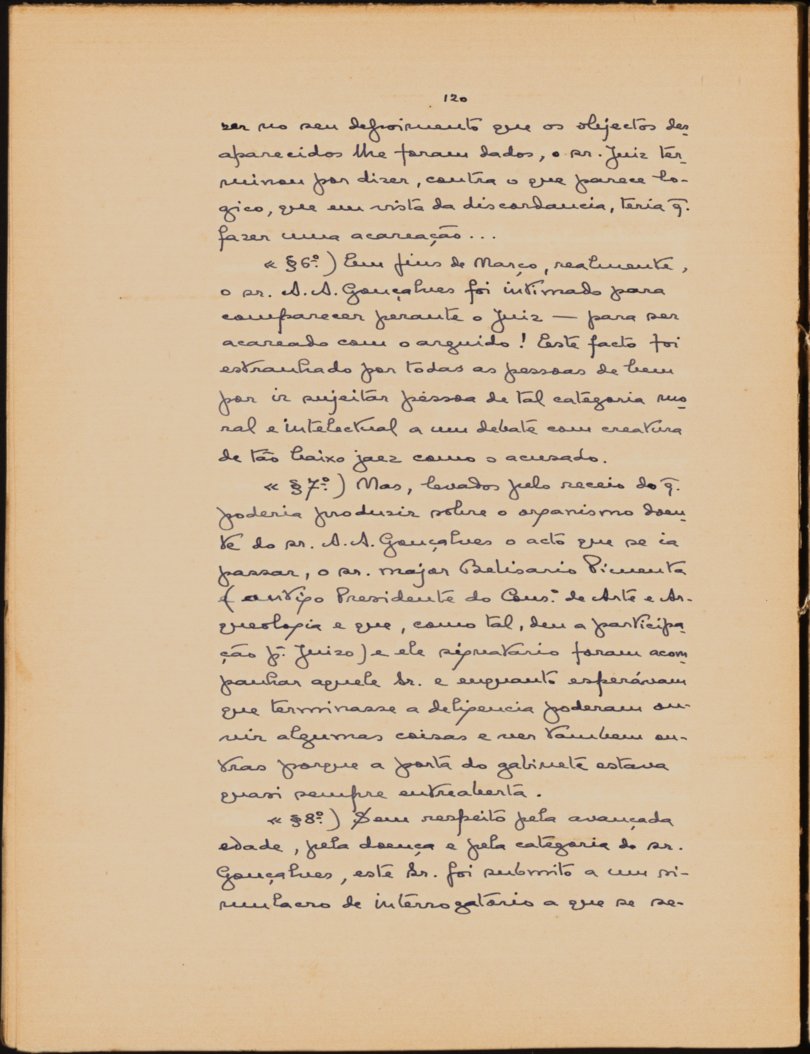 120
zer no seu depoimento que os objectos des-
aparecidos lhe foram dados, o sr. Juiz ter-
minou por dizer, contra o que parece lo-
gico, que em vista da discordancia, teria q̃.
fazer uma acareação...
« §6º.) Em fins de Março, realmente,
o sr. A. A. Gonçalves foi intimado para
comparecer perante o Juiz — para ser
acareado com o arguido! Este facto foi
estranhado por todas as pessoas de bem
por ir sujeitar pessoa de tal categoria mo-
ral e intelectual a um debate com creatura
de tão baixo jaez como o acusado.
« §7º.) Mas, levados pelo receio do q̃.
poderia produzir sobre o organismo doen-
te do sr. A. A. Gonçalves o acto que se ia
passar, o sr. major Belisario Pimenta
(antigo Presidente do Cons.º de Arte e Ar-
queologia e que, como tal, deu a participa-
ção p.ª Juizo) e ele signatario foram acom-
panhar aquele Sr. e enquanto esperávam
que terminasse a deligencia poderam ou-
vir algumas coisas e ver tambem ou-
tras porque a porta do gabinete estava
quasi sempre entreaberta.
« §8º.) Sem respeito pela avançada
edade, pela doença e pela categoria do sr.
Gonçalves, este Sr. foi submito a um si-
mulacro de interrogatorio a que se se-